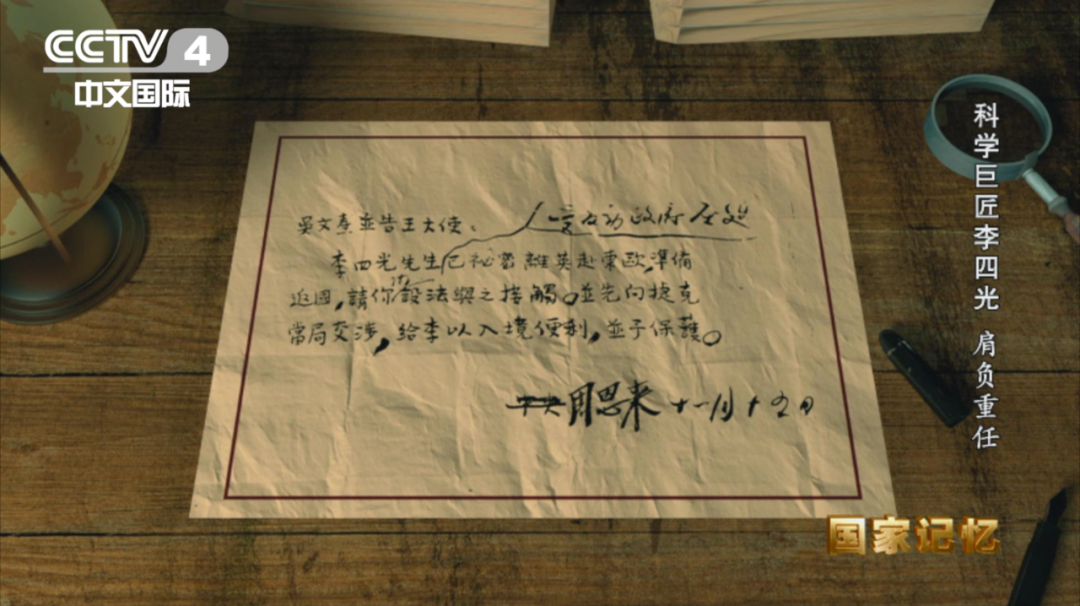 CCTV 4
中文国际
科学巨匠李四光 肩负重任
吳文焘並告王大使：
受反动政府压迫
李四光先生已秘密離英赴東欧，準備
返國，請你们設法與之接觸。並先向捷克
當局交涉，給李以入境便利，並予保護。
周恩来 十一月十五日
国家记忆